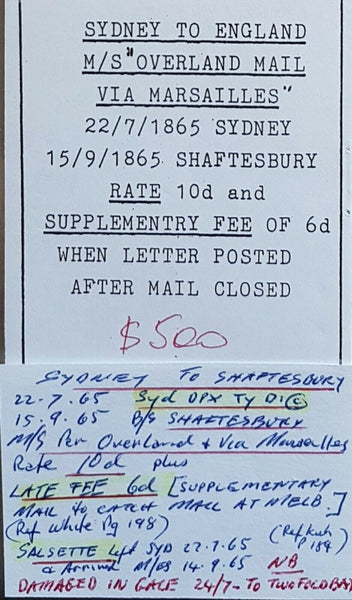 SYDNEY TO ENGLAND
M/S "OVERLAND MAIL
VIA MARSAILLES"
22/7/1865 SYDNEY
15/9/1865 SHAFTESBURY
RATE 10d and
SUPPLEMENTRY FEE OF 6d
WHEN LETTER POSTED
AFTER MAIL CLOSED
$500
SYDNEY TO SHAFTESBURY
22-7.65 Syd DPX Ty D1(c)
15.9.65 B/S SHAFTESBURY
M/S Per Overland & Via Marsailles
Rate 10d plus
LATE FEE 6d [SUPPLEMENTARY
MAIL TO CATCH MAIL AT MELB.]
(Ref White Pg 198) (Ref Kirk P 184)
SALSETTE Left SYD 22.7.65
Arrived M/ES 14.9.65 NB
DAMAGED IN GALE 24/7 - TO TWOFOLD BAY